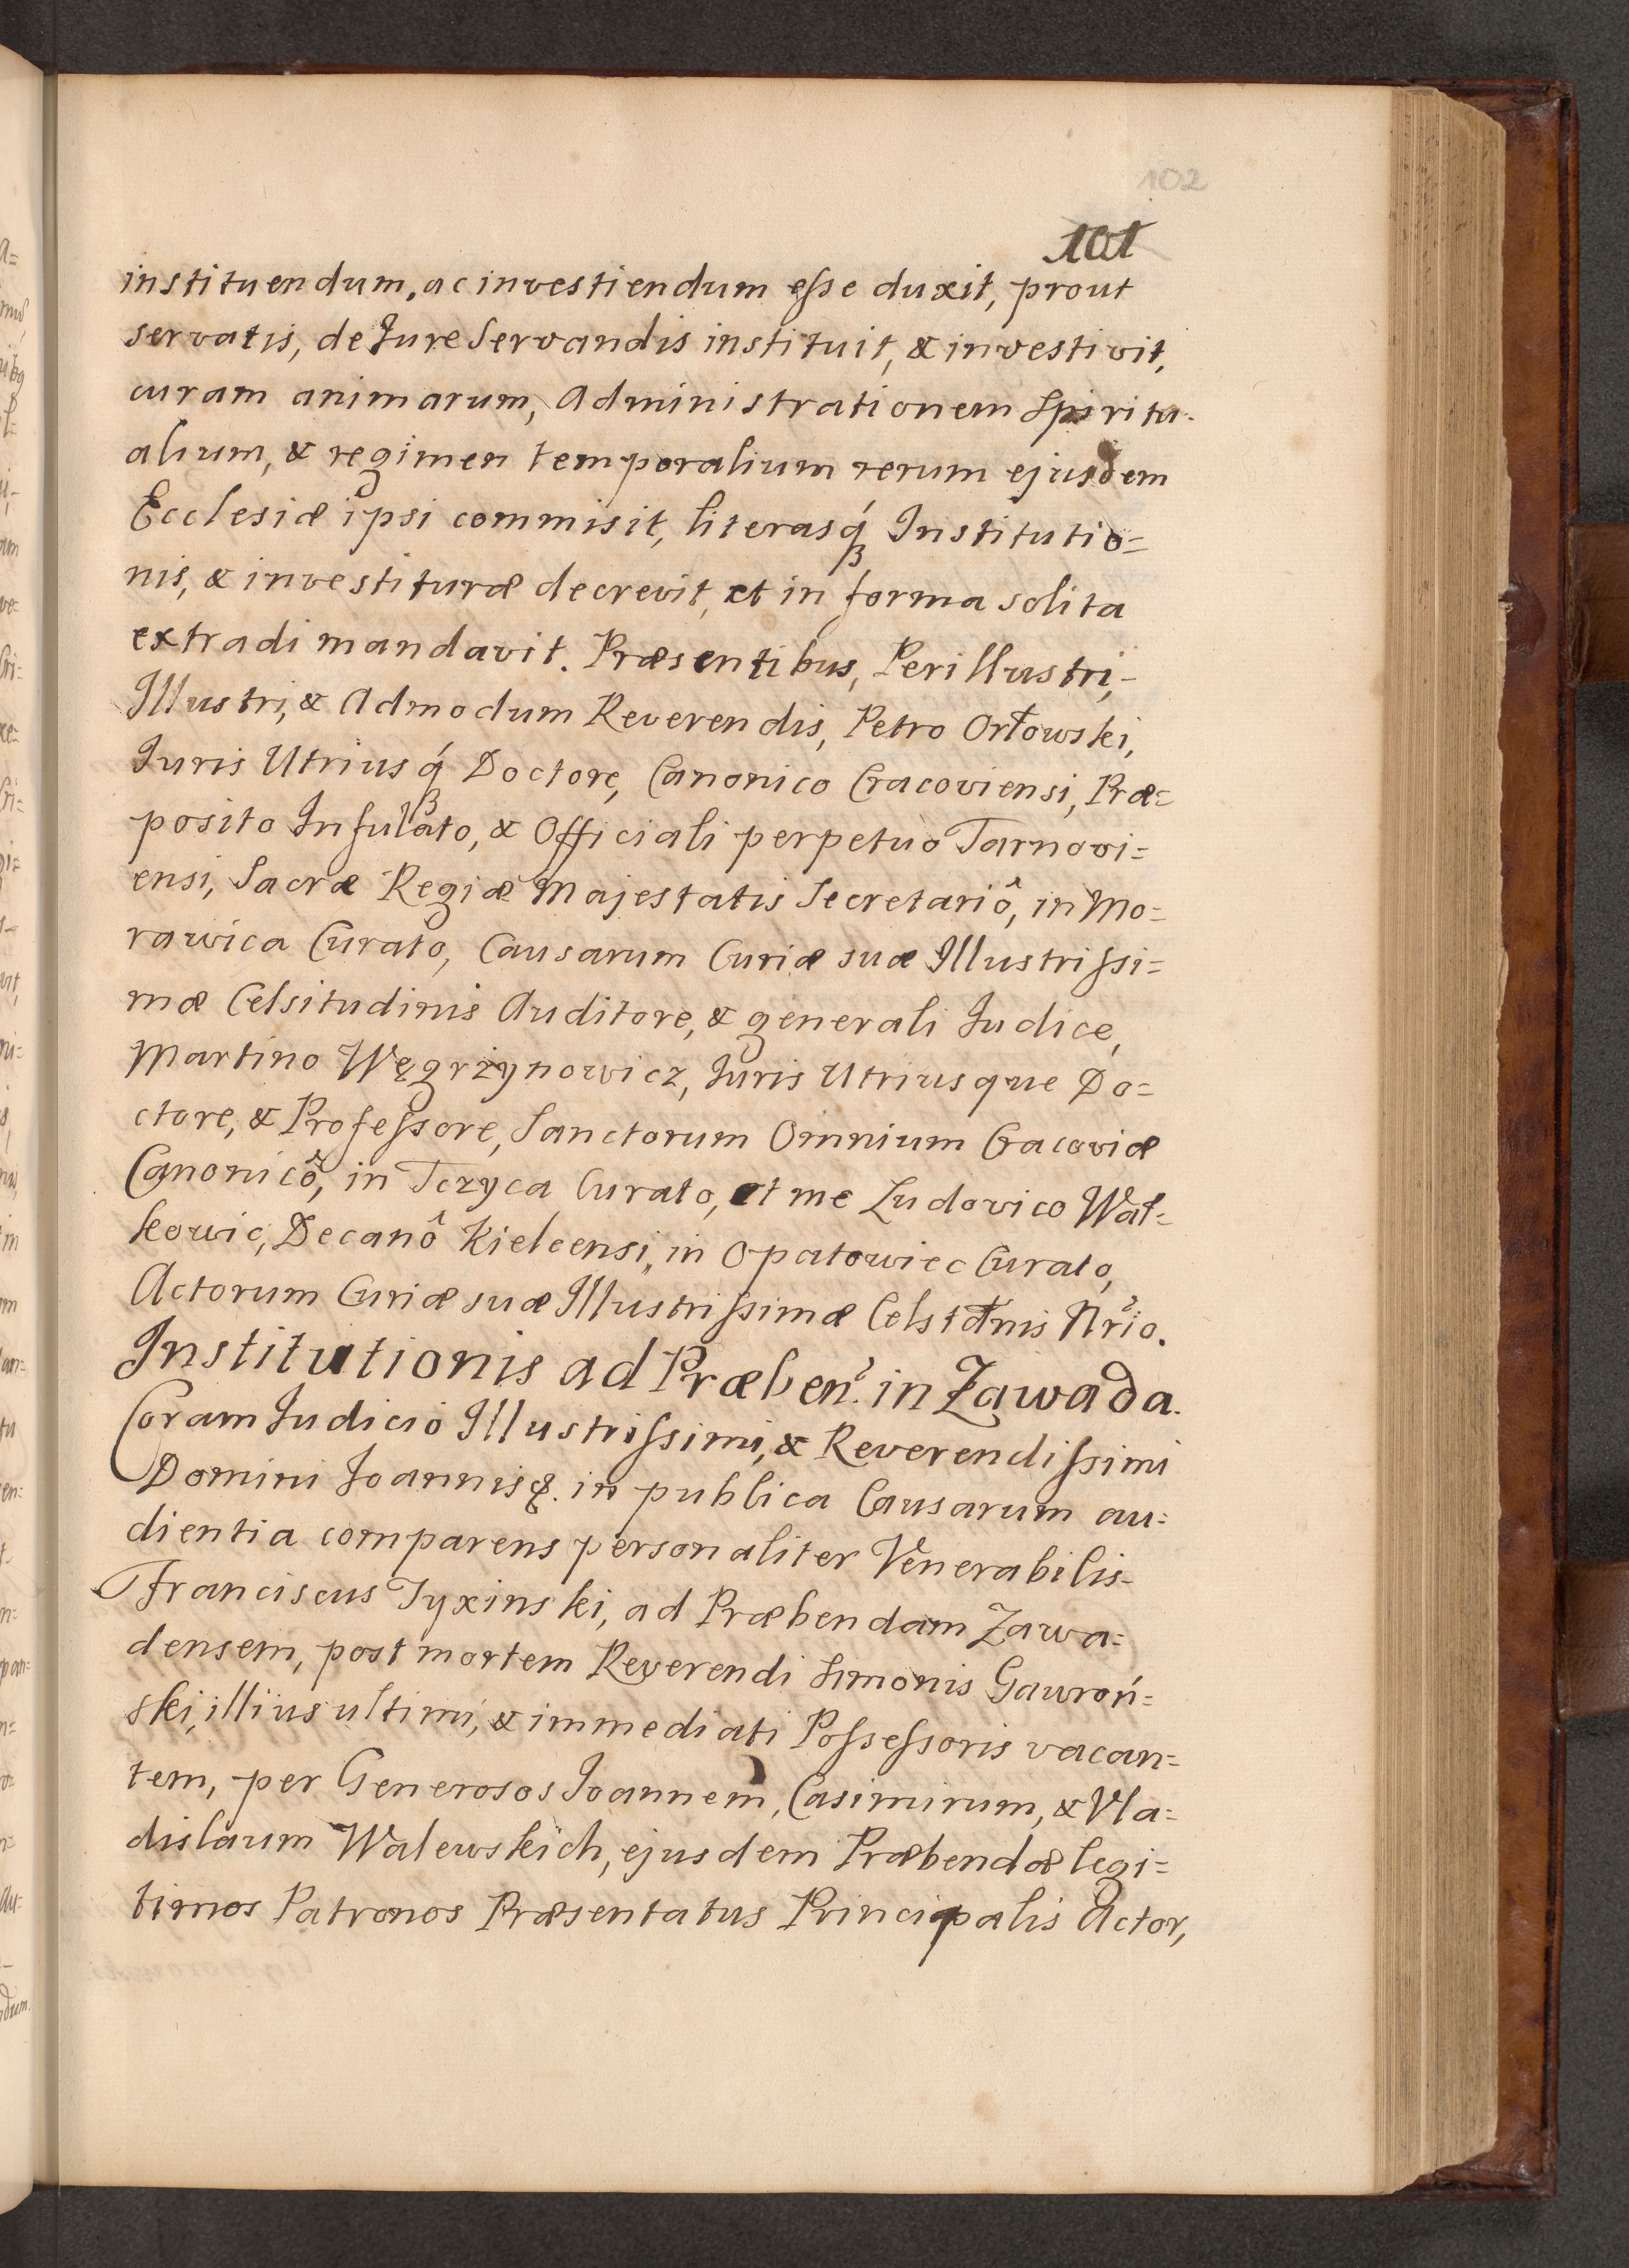 102
101
instituendum, ac investiendum esse duxit, prout
servatis, de Jure Servandis instituit, & investivit,
curam animarum, Administrationem Spiritu-
alium, & regimen temporalium rerum ejusdem
Ecclesiæ ipsi commisit, literasq́ꝫ Institutio=
nis, & investituræ decrevit, et in forma solita
extradi mandavit. Præsentibus, Perillustri,-
Illustri, & Admodum Reverendis, Petro Orłowski,
Juris Utriusq́ꝫ Doctore, Canonico Cracoviensi, Præ=
posito Infulato, & Officiali perpetuo Tarnovi=
ensi, Sacræ Regiæ Majestatis Secretariô, in Mo=
rawica Curato, Causarum Curiæ suæ Illustrissi=
mæ Celsitudinis Auditore, & generali Judice,
Martino Węgrżynowicz, Juris Utriusque Do=
ctore, & Professore, Sanctorum Omnium Cracoviæ
Canonicô, in Tczyca Curato, et me Ludovico Wał=
kowic, Decanô Kielcensi, in Opatowiec Curato,
Actorum Curiæ suæ Illustrissimæ Celstđnis Nrio.
Institutionis ad Præben. in Zawada.
Coram Judicio Illustrissimi, & Reverendissimi
Domini Joannis &. in publica Causarum au=
dientia comparens personaliter Venerabilis-
Franciscus Tyxinski, ad Præbendam Zawa=
densem, post mortem Reverendi Simonis Gawroń=
ski, illius ultimi, & immediati Possessoris vacan=
tem, per Generosos Joannem, Casimirum, & Vla=
dislaum Walewskich, ejusdem Præbendæ legi=
timos Patronos Præsentatus Principalis Actor,